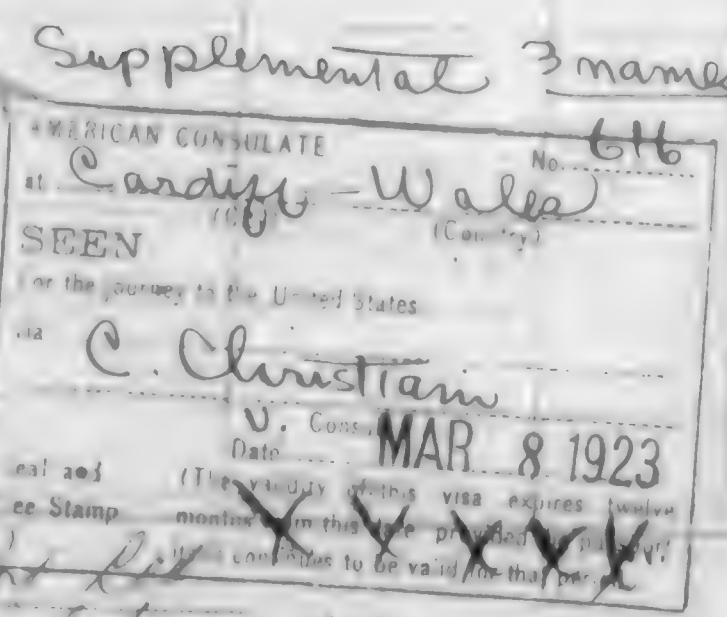 Supplemental 3 names
AMERICAN CONSULATE No. 616
at Cardiff - Wales
(City) (Country)
SEEN
For the journey to the United States
via
C. Christiani
V. Cons.
Date MAR 8 1923
eal and (The validity of this visa expires twelve
ee Stamp months from this date provided the passport
) continues to be valid for that period.)